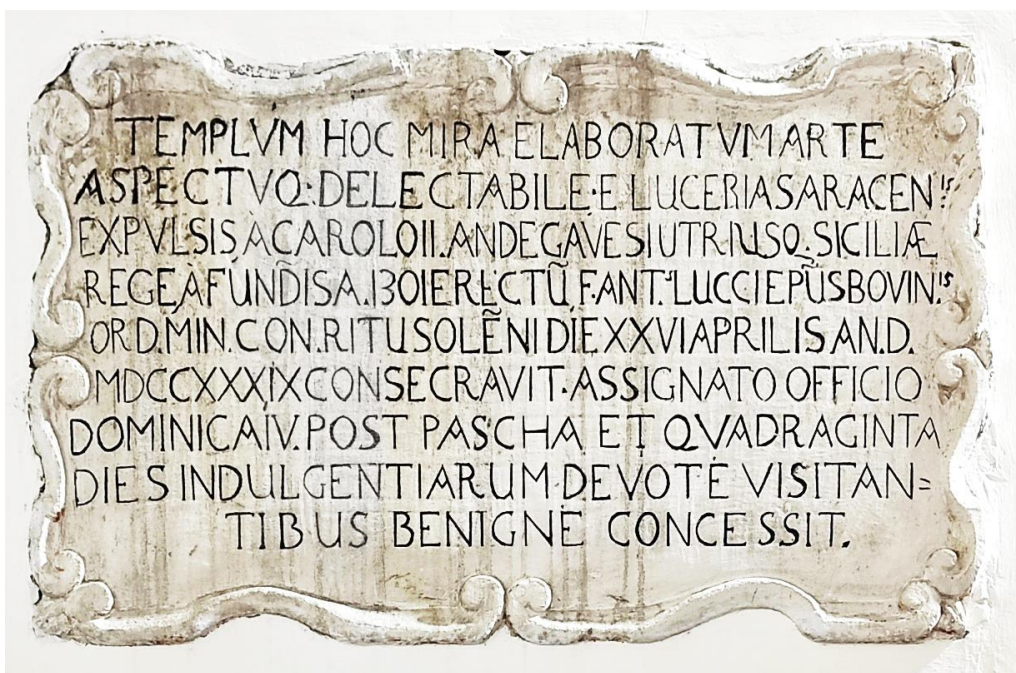 TEMPLVM HOC MIRA ELABORATVM ARTE
ASPECTVQ: DELECTABILE·E LUCERIA SARACEN.is
EXPVLSIS A CAROLO II. ANDEGAVESI UTRIUSQ. SICILIÆ
REGE, A FUNDIS A. 1301 ERECTŪ F. ANT. LUCCI EPŪS BOVIN.is
ORD. MIN. CON. RITU SOLĒNI DIE XXVI APRILIS AN. D.
MDCCXXXIX CONSECRAVIT. ASSIGNATO OFFICIO
DOMINICA IV. POST PASCHA ET QVADRAGINTA
DIES INDULGENTIARUM DEVOTE VISITAN=
TIBUS BENIGNE CONCESSIT.